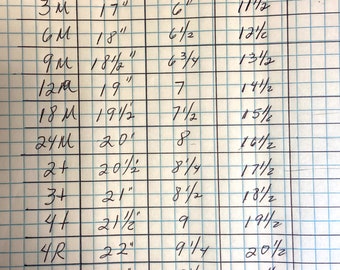 3M 17" 6" 11 1/2
6M 18" 6 1/2 12 1/2
9M 18 1/2" 6 3/4 13 1/2
12M 19" 7 14 1/2
18M 19 1/2 7 1/2 15 1/2
24M 20" 8 16 1/2
2t 20 1/2" 8 1/4 17 1/2
3t 21" 8 1/2 18 1/2
4t 21 1/2" 9 19 1/2
4R 22" 9 1/4 20 1/2